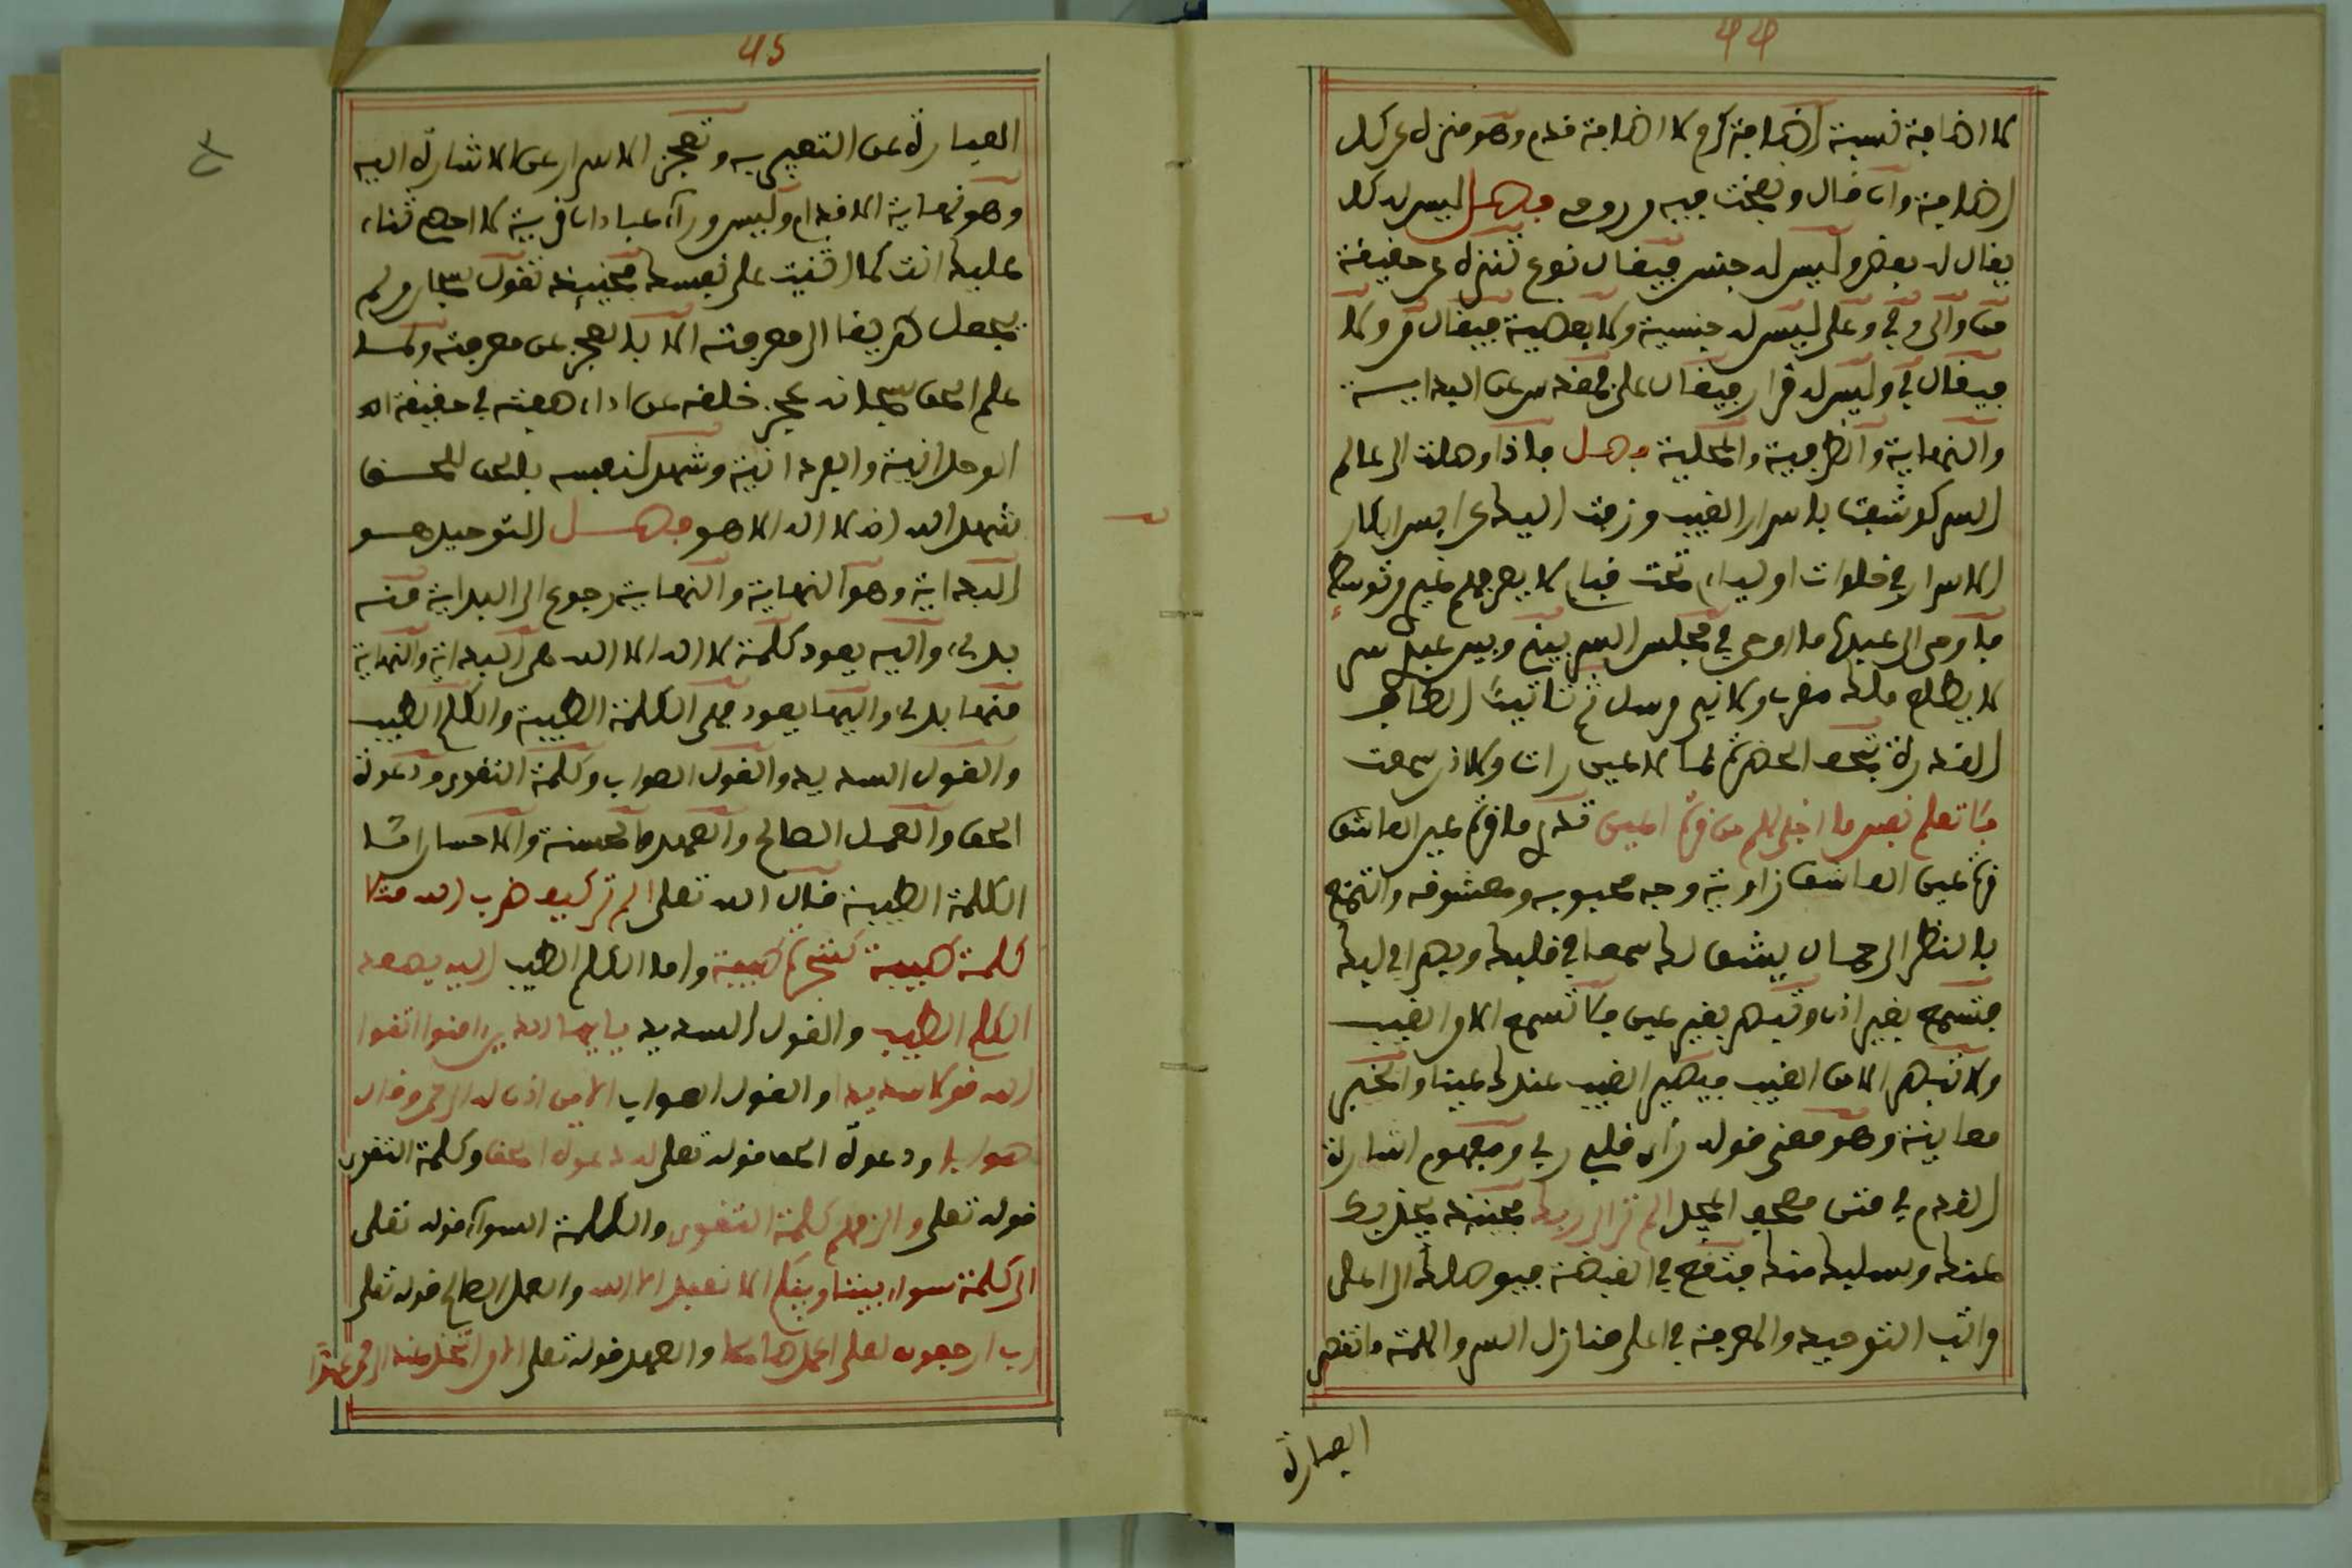 44
لا اضافة نسبة إضافة كرم لا اضافة قدم وهو منزه عن كل
إضافة وان قال ونفخت فيه من روحه فصل ليس له كل
يقال له بعض وليس له جنس فيقال نوع تنزه عن حقيقة
من والى وفي وعلى ليس له جنسية ولا بعضية فيقال من ولا
فيقال في وليس له قرار فيقال على تقدس عن البداية
والنهاية والظرفية والمحلية فصل فاذا وصلت الى عالم
السر كوشفت باسرار الغيب وزفت اليك عرايس ابكار
الاسرار في خلوات اوليائي تحت قبابي لا يعرفهم غيري
فاوحى الى عبده ما اوحى في مجلس السر بيني وبين عبدي سر
لا يطلع ملك مقرب ولا نبي مرسل ثم تاتيك الطاف
القدرة بتحف الحضرة مما لا عين رات ولا اذن سمعت
فلا تعلم نفس ما اخفي لهم من قرة اعين تدري ما قرة عين العاشق
قرة عين العاشق رؤية وجه محبوبه ومعشوقه والتمتع
بالنظر الى جماله يشق لك سمعا في قلبك وبصرا في لبك
فتسمع بغير اذن وتبصر بغير عين فلا تسمع الا من الغيب
ولا تبصر الا من الغيب فيصير الغيب عندك عينا والخبر
معاينة وهو معنى قوله راى قلبي ربي ومفهوم اشارة
القدم في متن مصحف المجد الم تر الى ربك فحينئذ يجذبك
عنك ويسلبك منك فتقع في القبضة فيوصلك الى اعلى
مراتب التوحيد والمعرفة في اعلى منازل السر والهمة فتقصر
العبارة
45
العبارة عن التعبير به وتعجز الاسرار عن الاشارة اليه
وهو نهاية الاقدام وليس وراء عبادان قرية لا احصي ثناء
عليك انت كما اثنيت على نفسك فحينئذ تقول سبحان من لم
يجعل طريقا الى معرفته الا بالعجز عن معرفته ولما
علم الحق سبحانه عجز خلقه عن اداء حقه في حقيقة
الوحدانية والفردانية وشهد لنفسه بالحق للحق
شهد الله انه لا اله الا هو فصل التوحيد هو
البداية وهو النهاية والنهاية رجوع الى البداية منه
بدئ واليه يعود كلمة لا اله الا الله هي البداية والنهاية
منها بدئ واليها يعود فهي الكلمة الطيبة والكلم الطيب
والقول السديد والقول الصواب وكلمة التقوى ودعوة
الحق والعمل الصالح والعهد والحسنة والاحسان اما
الكلمة الطيبة قال الله تعلى الم تر كيف ضرب الله مثلا
كلمة طيبة كشجرة طيبة واما الكلم الطيب اليه يصعد
الكلم الطيب والقول السديد يايها الذين امنوا اتقوا
الله قولا سديدا والقول الصواب الا من اذن له الرحمن وقال
صوابا ودعوة الحق قوله تعلى له دعوة الحق وكلمة التقوى
قوله تعلى والزمهم كلمة التقوى والكلمة السواء قوله تعلى
الى كلمة سواء بيننا وبينكم الا نعبد الا الله والعمل الصالح قوله تعلى
رب ارجعون لعلي اعمل صالحا والعهد قوله تعلى الا من اتخذ عند الرحمن عهدا